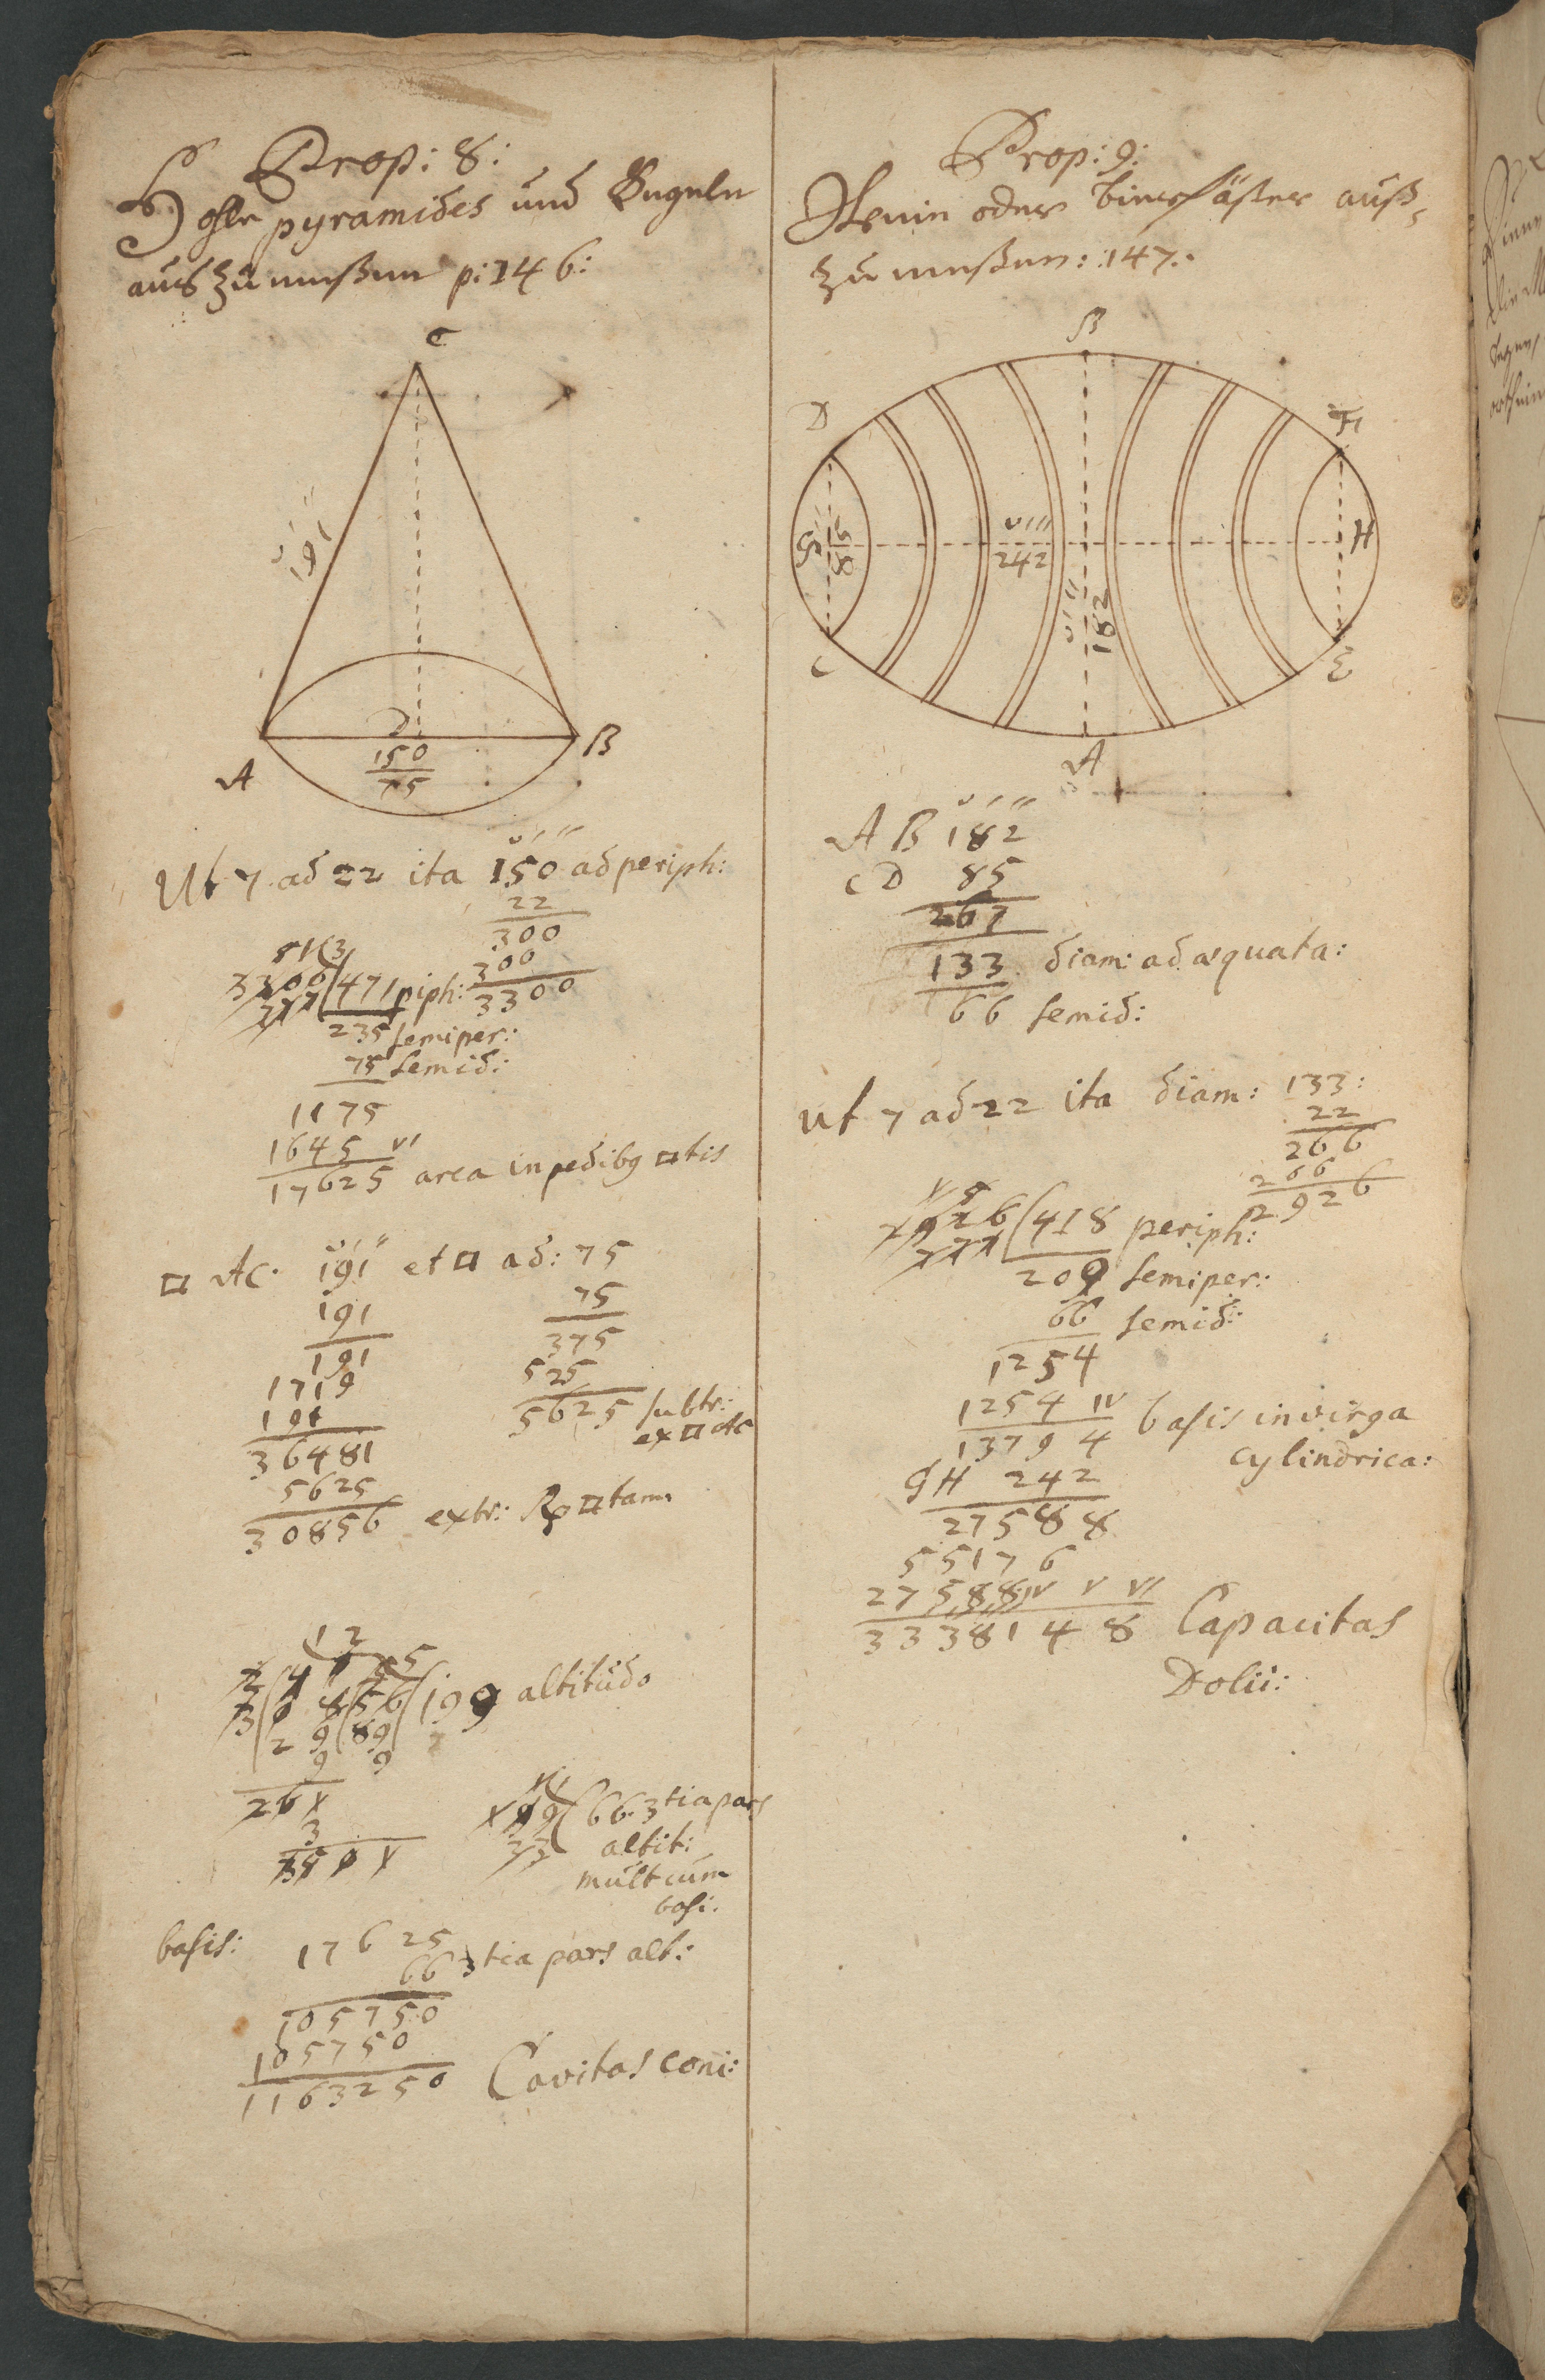 Prop: 8:
Hohle pyramides und Kugeln
aus zu meßen p: 146:
C
191
D
150
75
A
B
Ut 7 ad 22 ita 150 ad periph:
22
300
300
3300
3300 (471 piph:
235 semiper:
75 semid:
1175
1645 VI
17625 area in pedibq □tis
□ AC. 191 et □ ad: 75
191
191
1719
191
36481
5625
30856 extr: R □tam
75
375
525
5625 subtr:
ex □ AC
12
199 altitudo
199 (66. 3tia pars
altit:
mult cum
basi:
basis: 17625
66 3tia pars alt:
105750
105750
1163250 Cavitas coni:
Prop: 9:
Wein oder bierfäßer auß-
zu meßen: 147.
B
D
F
G
85
242
182
H
C
E
A
A B 182
C D 85
267
133 diam: adæquata:
66 semid:
ut 7 ad 22 ita diam: 133:
22
266
266
2926
2926 (418 periph:
209 semiper:
66 semid:
1254
1254 IV
13794 basis in virga
cylindrica:
GH 242
27588
55176
27588 IV V VI
3338148 Capacitas
Dolii: